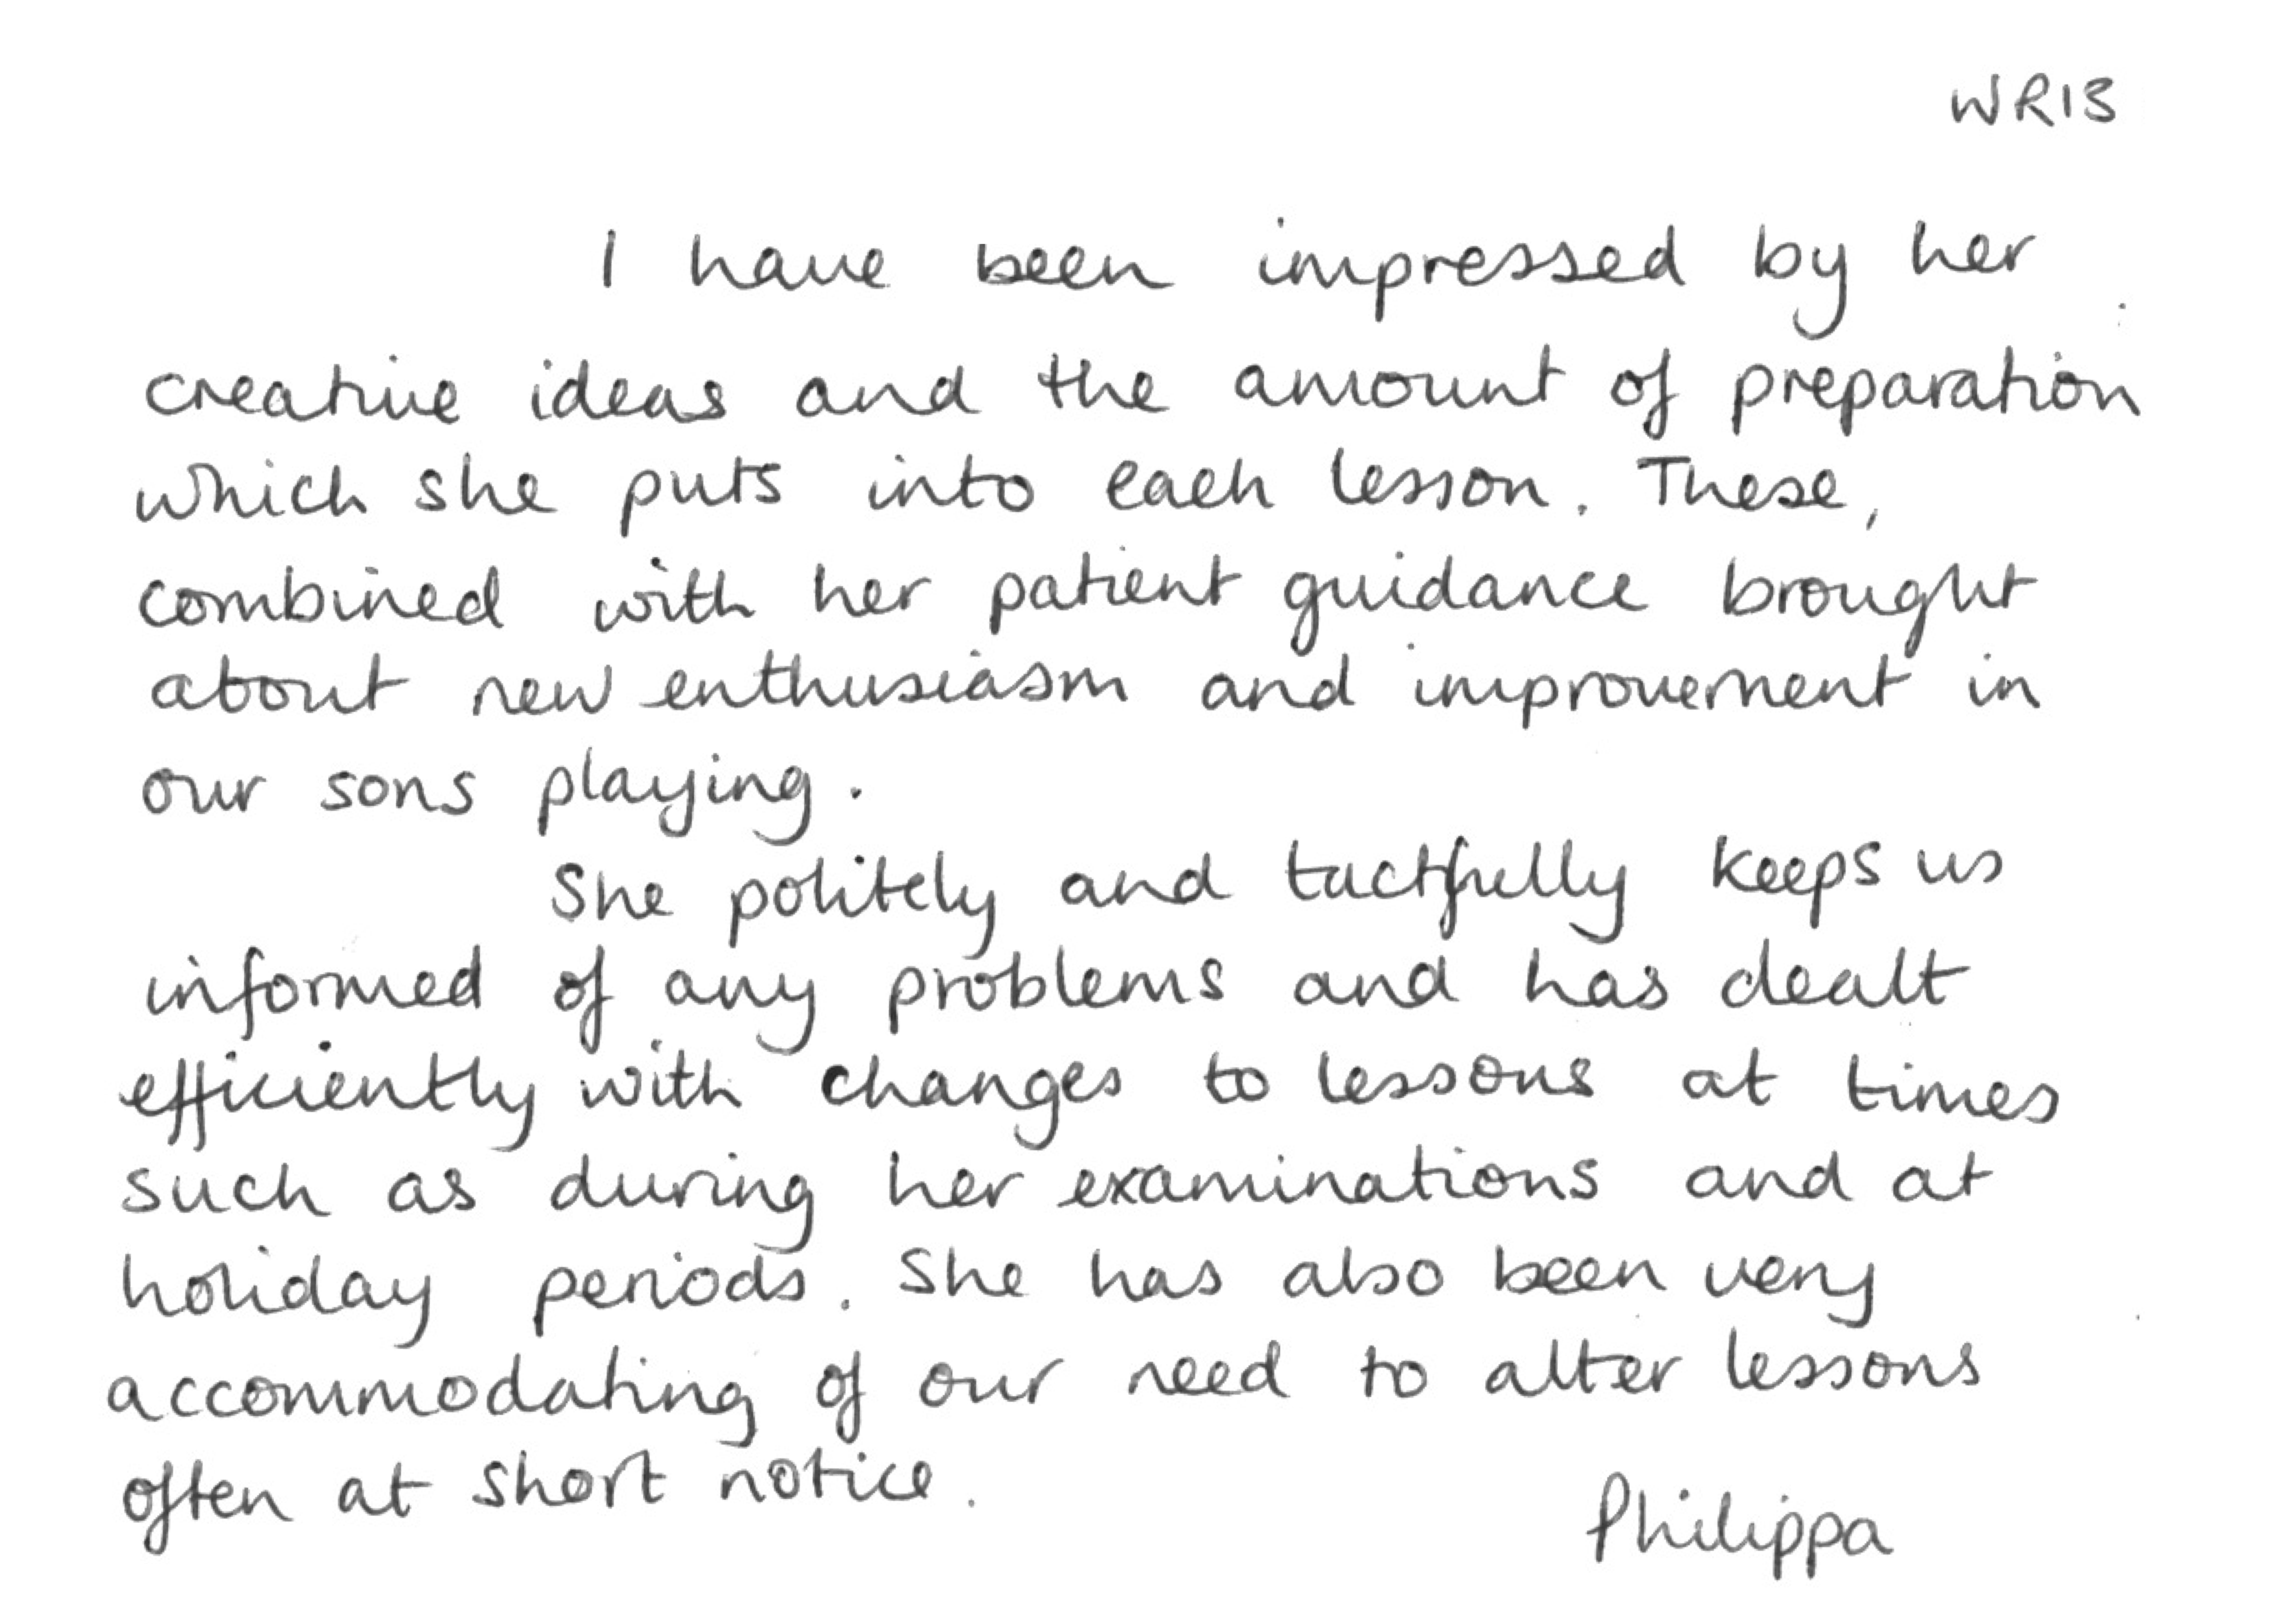 WR13
I have been impressed by her
creative ideas and the amount of preparation
which she puts into each lesson. These,
combined with her patient guidance brought
about new enthusiasm and improvement in
our sons playing.
She politely and tactfully keeps us
informed of any problems and has dealt
efficiently with changes to lessons at times
such as during her examinations and at
holiday periods. She has also been very
accommodating of our need to alter lessons
often at short notice.
Philippa